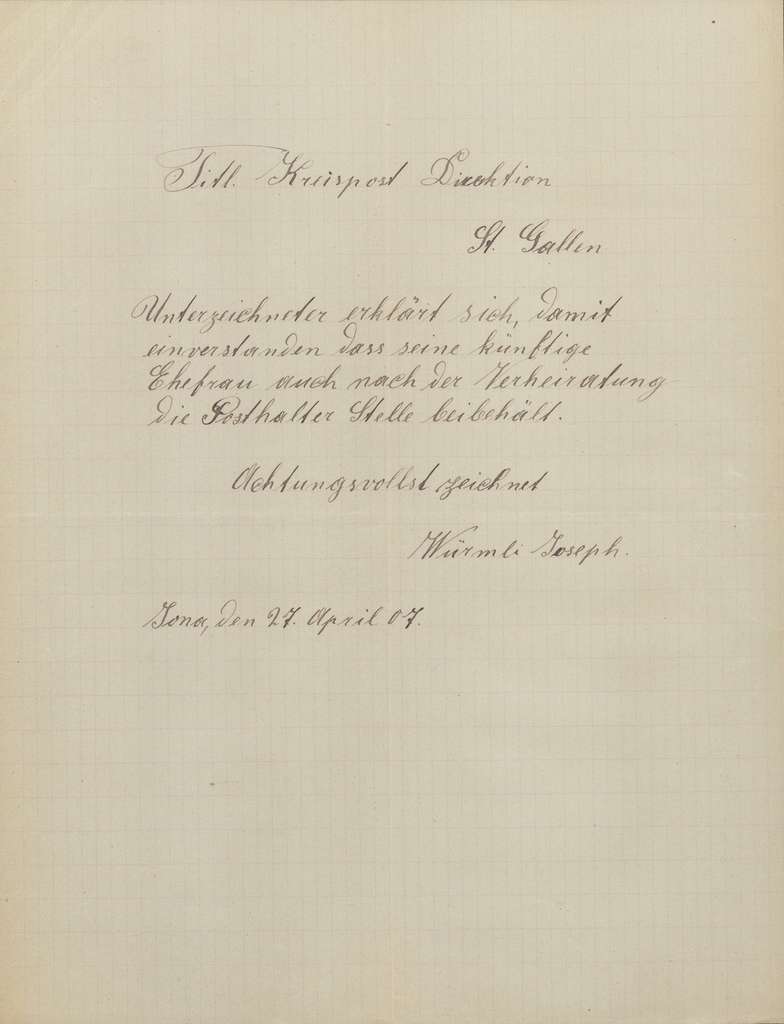 Titl. Kreispost Direktion
St. Gallen
Unterzeichneter erklärt sich, damit
einverstanden dass seine künftige
Ehefrau auch nach der Verheiratung
die Posthalter Stelle beibehält.
Achtungsvollst zeichnet
Würmli Joseph.
Jona, den 27. April 07.